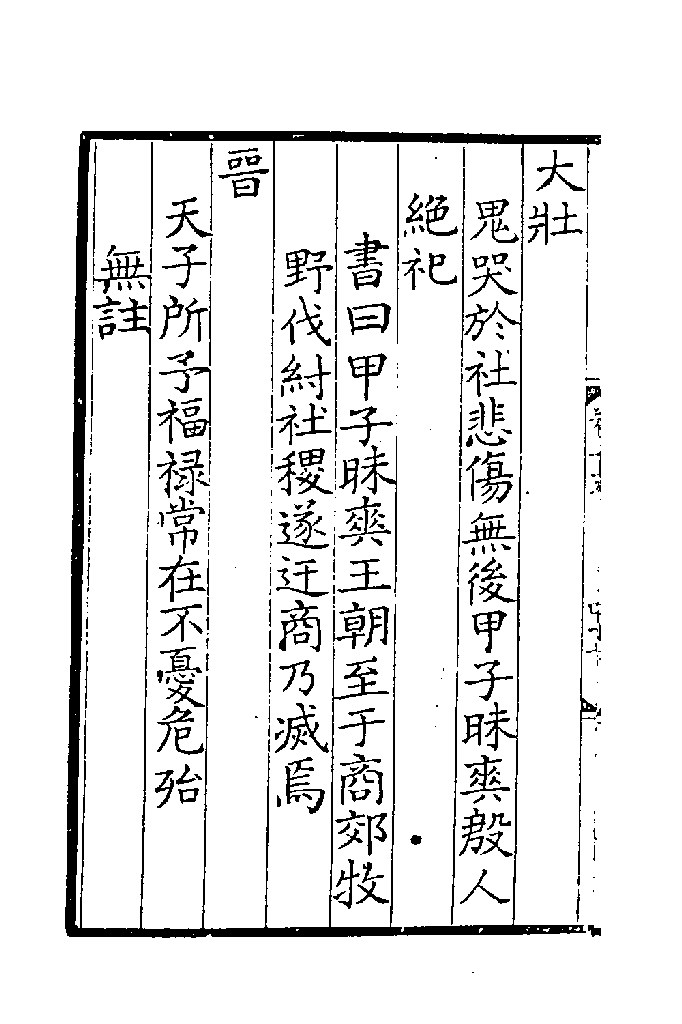 大壯
鬼哭於社悲傷無後甲子昧爽殷人
絶祀
書曰甲子昧爽王朝至于商郊牧
野伐紂社稷遂迁商乃滅焉
晉
天子所予福禄常在不憂危殆
無註